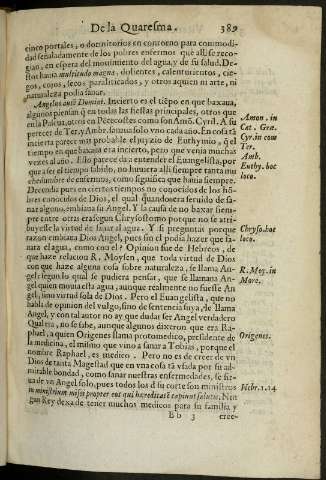 De la Quaresma. 389
cinco portales, o dormitorios en contorno para commodi-
dad señaladamente de los pobres enfermos que allí se reco-
gian, en espera del movimiento del agua, y de su salud. De-
stos hauia multitudo magna, dolientes, calenturientos, cie-
gos, coxos, secos paraliticados, y otros aquien ni arte, ni
naturaleza podia sanar.
Angelus autē Domini. Incierto es el tiēpo en que baxaua,
algunos piensan q̃ en todas las fiestas principales, otros que
en la Pascua, otros en Pentecostes como son Amō. Cyril. A su
parecer de Ter. y Ambr. solo vno cada año. En cosa tā
incierta parece mas probable el juyzio de Euthymio, q̃ el
tiempo en que baxaua era incierto, pero que venia muchas
vezes al año. Ello parece da a entender el Euangelista, por
que a ser el tiempo sabido, no huuiera allì siempre tanta mu
chedumbre de enfermos, como significa que hauia siempre.
Decendia pues en ciertos tiempos no conocidos de los hō-
bres conocidos de Dios, el qual quando era seruido de sa-
nar algunos, embiaua su Angel. Y la causa de no baxar siem-
pre entre otras era segun Chrysostomo por que no se atri-
buyesse la virtud de sanar el agua. Y si preguntas por que
razon embiaua Dios Angel, pues sin el podia hazer que sa-
nara el agua, como con el? Opinion fue de Hebreos, de
que haze relacion R. Moysen, que toda virtud de Dios
con que haze alguna cosa sobre naturaleza, se llama An-
gel: segun lo qual se pudiera pensar, que se llamaua An-
gel quien mouia esta agua, aunque realmente no fuesse An
gel, sino virtud sola de Dios. Pero el Euangelista, que no
habla de opinion del vulgo, sino de sentencia suya, le llama
Angel, y con tal autor no ay que dudar ser Angel verdadero
Qual era, no se sabe, aunque algunos dixeron que era Ra-
phael, a quien Origenes llama protomedico, presidente de
la medicina, el mismo que vino a sanar a Tobias, porque el
nombre Raphael, es medico. Pero no es de creer de vn
Dios de tanta Magestad que en vna cosa tā vsada por su ad-
mirable bondad, como sanar nuestras enfermedades, se sir-
ua de vn Angel solo, pues todos los de su corte son ministros
in ministerium missi propter eos qui hæreditatē capiunt salutis. Nin
gun Rey dexa de tener muchos medicos para su familia, y
Bb 3 cree-
Amon. in
Cat. Græ.
Cyr. in com
Ter.
Amb.
Euthy. hoc
loco.
Chryso. hoc
loco.
R. Moy. in
More.
Origenes.
Hebr. 1.14